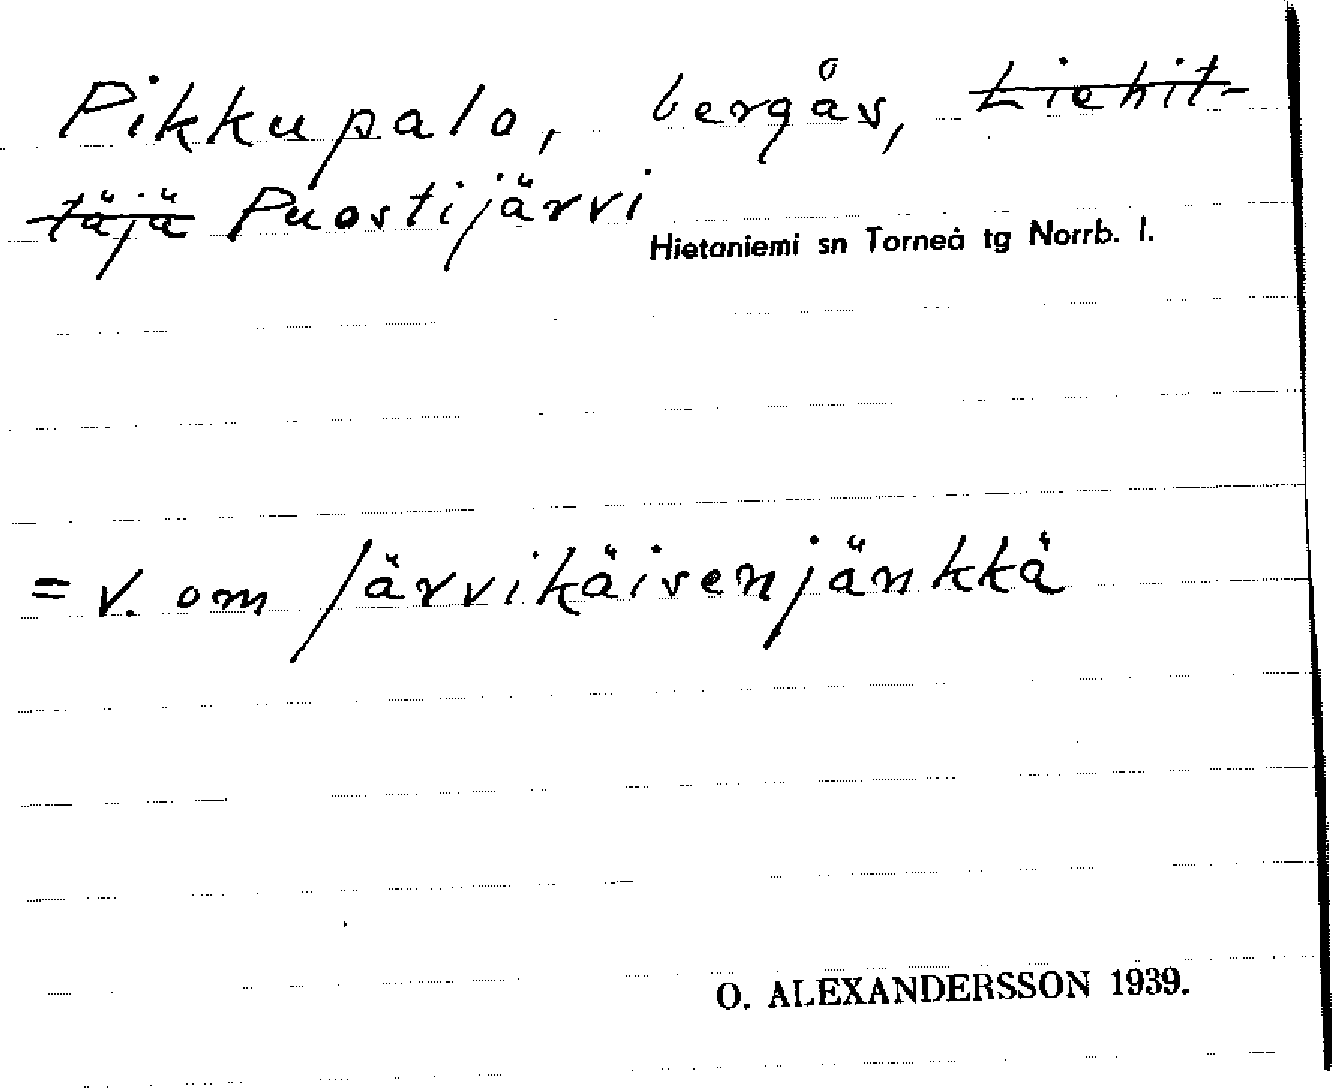 Pikkupalo, bergås, Liehit-
täjä Puostijärvi
Hietaniemi sn Torneå tg Norrb. l.
= V. om Järvikäisenjänkkä
O. ALEXANDERSSON 1939.